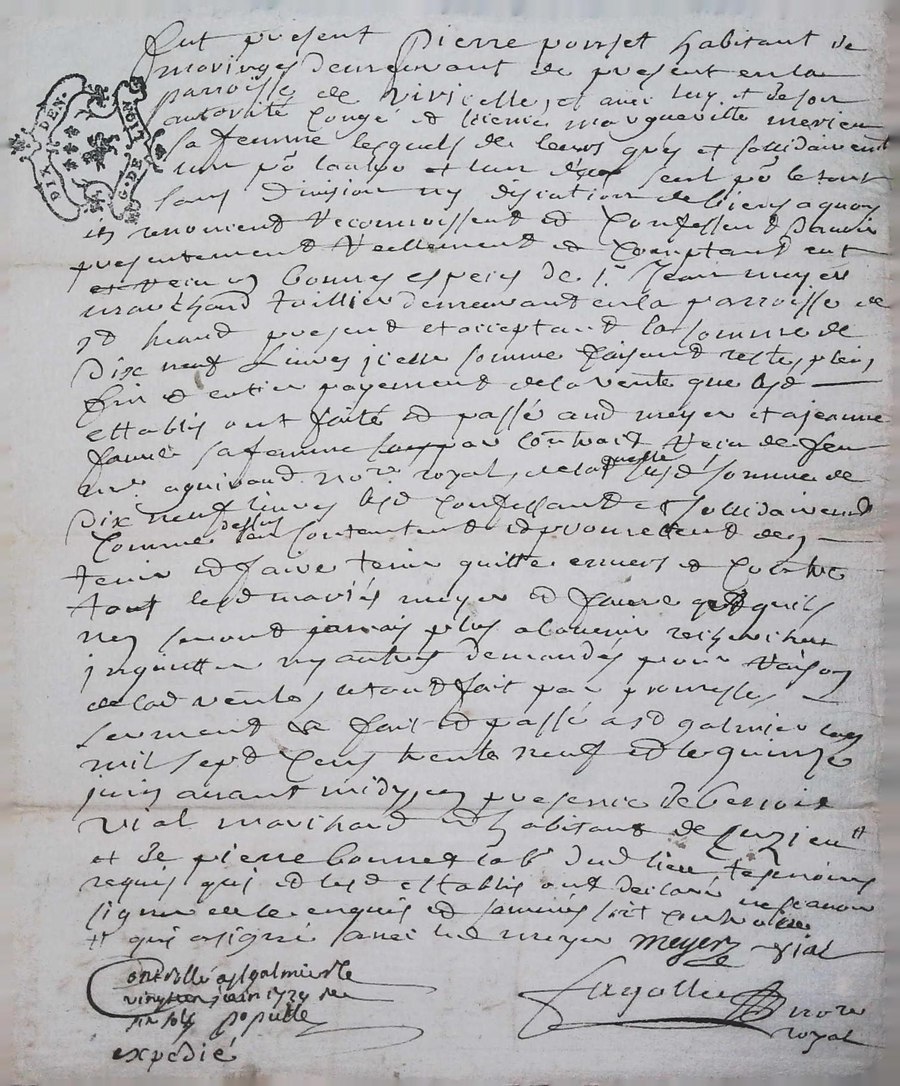 DIX DEN. G. DE LION
fut present Pierre ponset habitant de
maringes demeurant de present en la
parroisse de viricelle, et avec luy et de son
autorité congé et licence margueritte merieu
sa femme lesquels de leurs gres et sollidairement
l'un po l'autre et l'un d'eux seul po le tout
sans division ny discution de biens a quoy
ils renoncent reconnoissent et confessent d'avoir
presentement reellement et comptant eut
et receu en bonnes especes de sr Jean meyer
marchand taillier demeurant en la parroisse de
st heand present et acceptant la somme de
Dix neuf Livres jcelle somme faisant reste, plein,
fin et entier payement de la vente que lesd
ettablis ont faite et passé aud meyer et a jeanne
faure sa femme par contrait receu de feu
me aguiraud nore royal, de laquelle susd somme de
Dix neuf livres lesd confessant et sollidairement
comme dessus sen contentent et promettent den
tenir et faire tenir quitte envers et contre
tout lesd mariés meyer et faure et quils
nen seront jamais plus a lavenir recherchés
jnquiettes ny autres demandés pour raison
de lad vente, et tout fait par promesse,
serment &a fait et passé a st galmier lan
mil sept cens trente neuf et le quinze
juin avant midy, en presence de benoit
vial marchand et habitant de Luzieu tt
et de pierre bonnet lab dud lieu, tesmoins
requis qui et lesd ettablis ont declaré ne scavoir
signer de ce enquis et sommés soit controllee
tt qui a signé avec led meyer meyer vial
Controllé a st galmier le
juin 1739 Receu
six sols populle
expedié
fagolle nore
royal